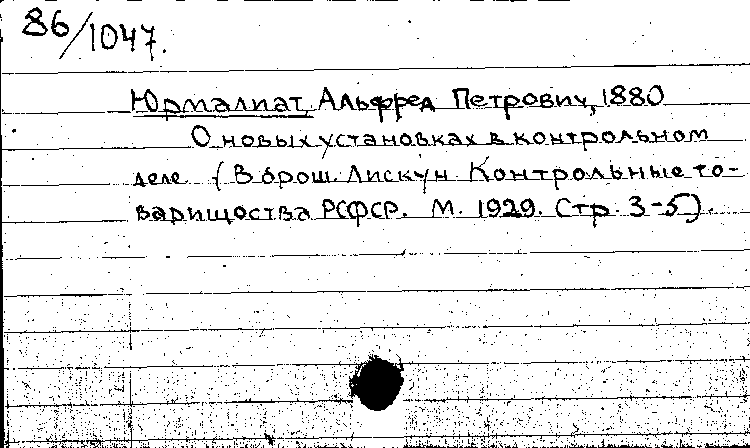 86/1047.
Юрмалиат, Альфред Петрович, 1880
О новых установках в контрольном
деле (В брош. Лискун. Контрольные то-
варищества РСФСР. М. 1929. Стр. 3-5).